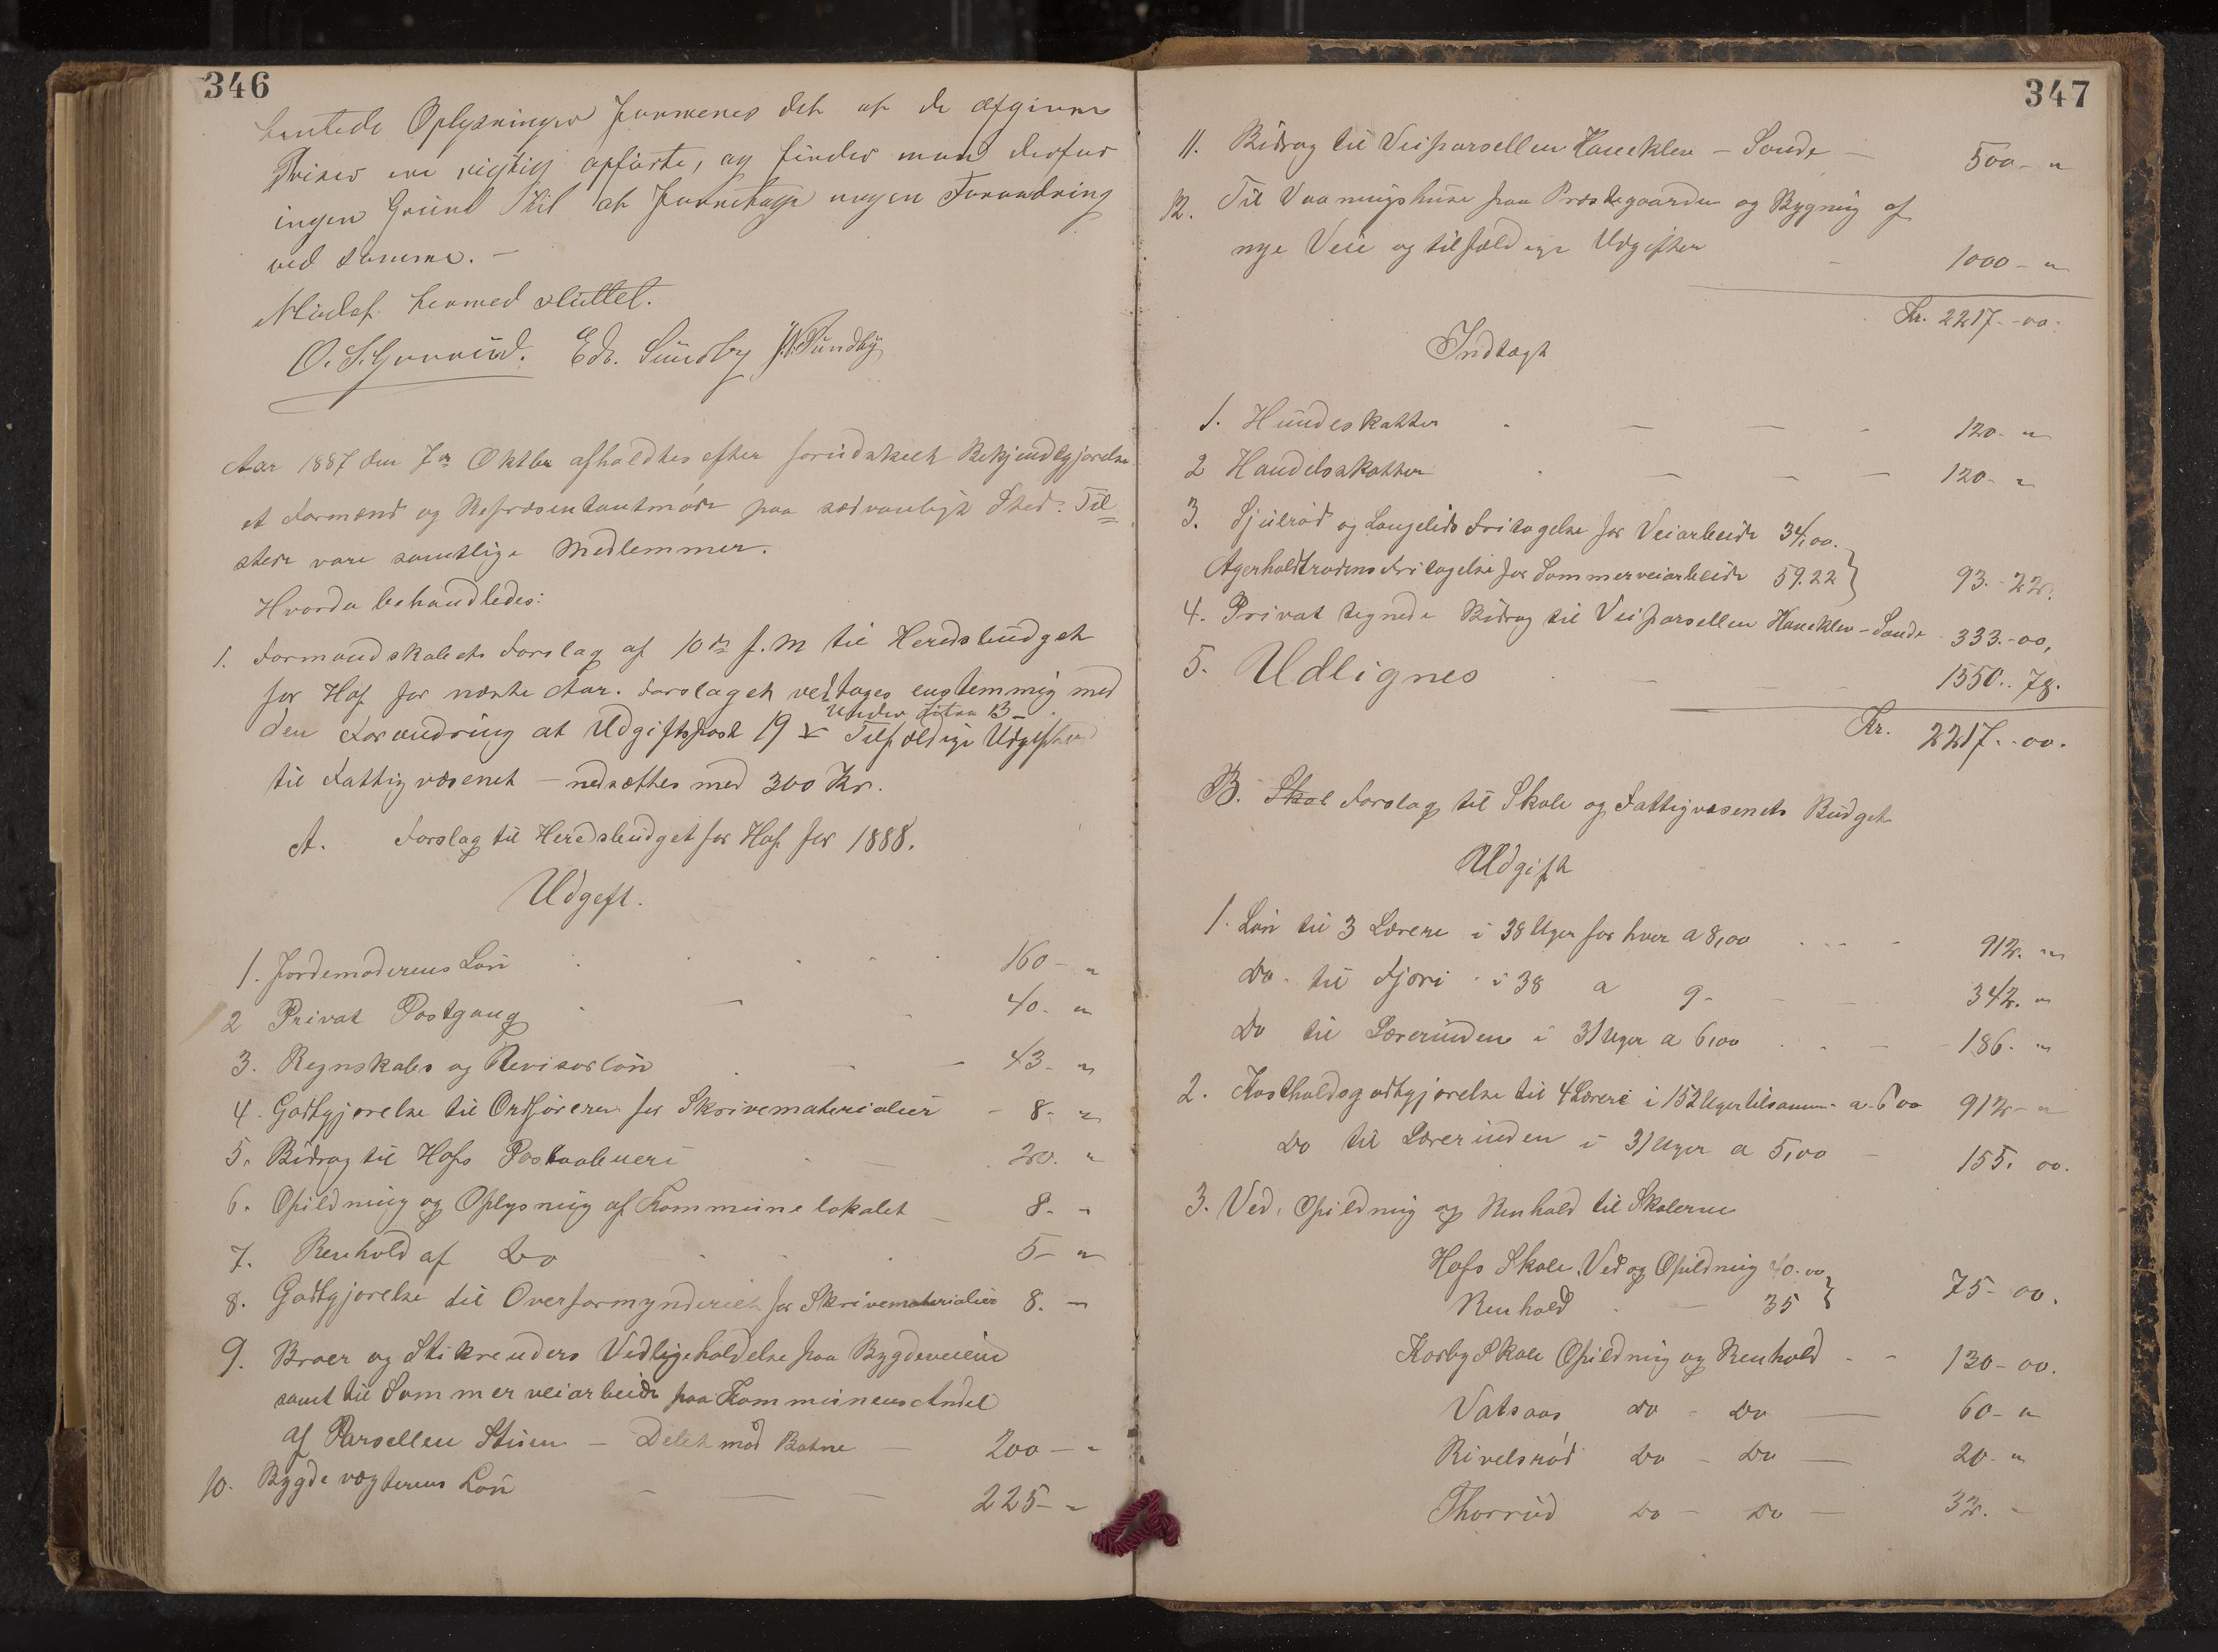 346
hentede Oplysninger formenes det at de afgivne
Priser ere rigtig opførte, og finder man derfor
ingen Grund til at foretage nogen Forandring
ved samme. –
Mødet hermed sluttet.
Edv. Sundby Sundby
Aar 1887 den 7de Oktbr afholdtes efter forudskeet Bekjendtgjørelse
et Formænd og Repræsentantmøde paa sædvanligt Sted. Til=
stede vare samtlige Medlemmer.
Hvorda behandledes:
1. Formandskabets Forslag af 10de f.M til Heredsbudget
for Hof for næste Aar. Forslaget vedtages enstemmig med
den Forandring at Udgiftspost 19 under Litra B – Tilfældige Udgifter
til Fattigvæsenet – nedsættes med 300 Kr.
A. Forslag til Heredsbudget for Hof for 1888.
Udgift.
1. Jordemoderens Løn 160 – "
2 Privat Postgang – 40. "
3. Regnskabs og Revisorløn – – 43. "
4. Godtgjørelse til Ordføreren for Skrivematerialier – 8. "
5. Bidrag til Hofs Postaabneri – 20. "
6. Opildning og Oplysning af Kommunelokalet – 8. "
7. Renhold af Do 5 – "
8. Godtgjørelse til Overformynderiet for Skrivematerialier 8. "
9. Broer og Stikrenders Vedligeholdelse paa Bygdeveiene
samt til Sommerveiarbeide paa Kommunens Andel
af Parsellen Stuen – Delet mod Botne – 200 – "
10. Bygdevægterens Løn – – – 225 – "
347
11. Bidrag til Veiparsellen Haneklev – Sande – 500 – "
12. Til Vaaningshuse paa Præstegaarden og Bygning af
nye Veie og tilfældige Udgifter – 1000 – "
Kr. 2217 – 00.
Indtægt
1. Hundeskatter – – – 120. "
2 Handelsskatter – – – 120 – "
3. Sjuerød og Langelids Fritagelse for Veiarbeide 34,00.
Agerholdtrodens Fritagelse for Sommerveiarbeide 59.22 } 93. 22.
4. Privat tegnede Bidrag til Veiparsellen Haneklev – Sande 333. – 00,
5. Udlignes – – – 1550.. 78.
Kr. 2217. – 00.
B. Skol Forslag til Skole og Fattigvæsenets Budget
Udgift
1. Løn til 3 Lærere i 38 Uger for hver a 8,00 – 912. "
Do. til Fjori i 38 a 9 – – – 342. "
Do til Lærerinden i 31 Uger a 6,00 – – 186. "
2. Kostholdsgodtgjørelse til 4 Lærere i 152 Uger tilsamm. a 6 00 912 – "
Do til Lærerinden i 31 Uger a 5,00 – 155. 00.
3. Ved, Opildning og Renhold til Skolerne
Hofs Skole, Ved og Opildning 40.00
Renhold – 35 } 75 – 00.
Korby Skole Opildning og Renhold – – 130 – 00.
Vatsaas Do – Do – 60 – "
Rivelsrød Do – Do – 20. "
Thorrud Do – Do – 32. "